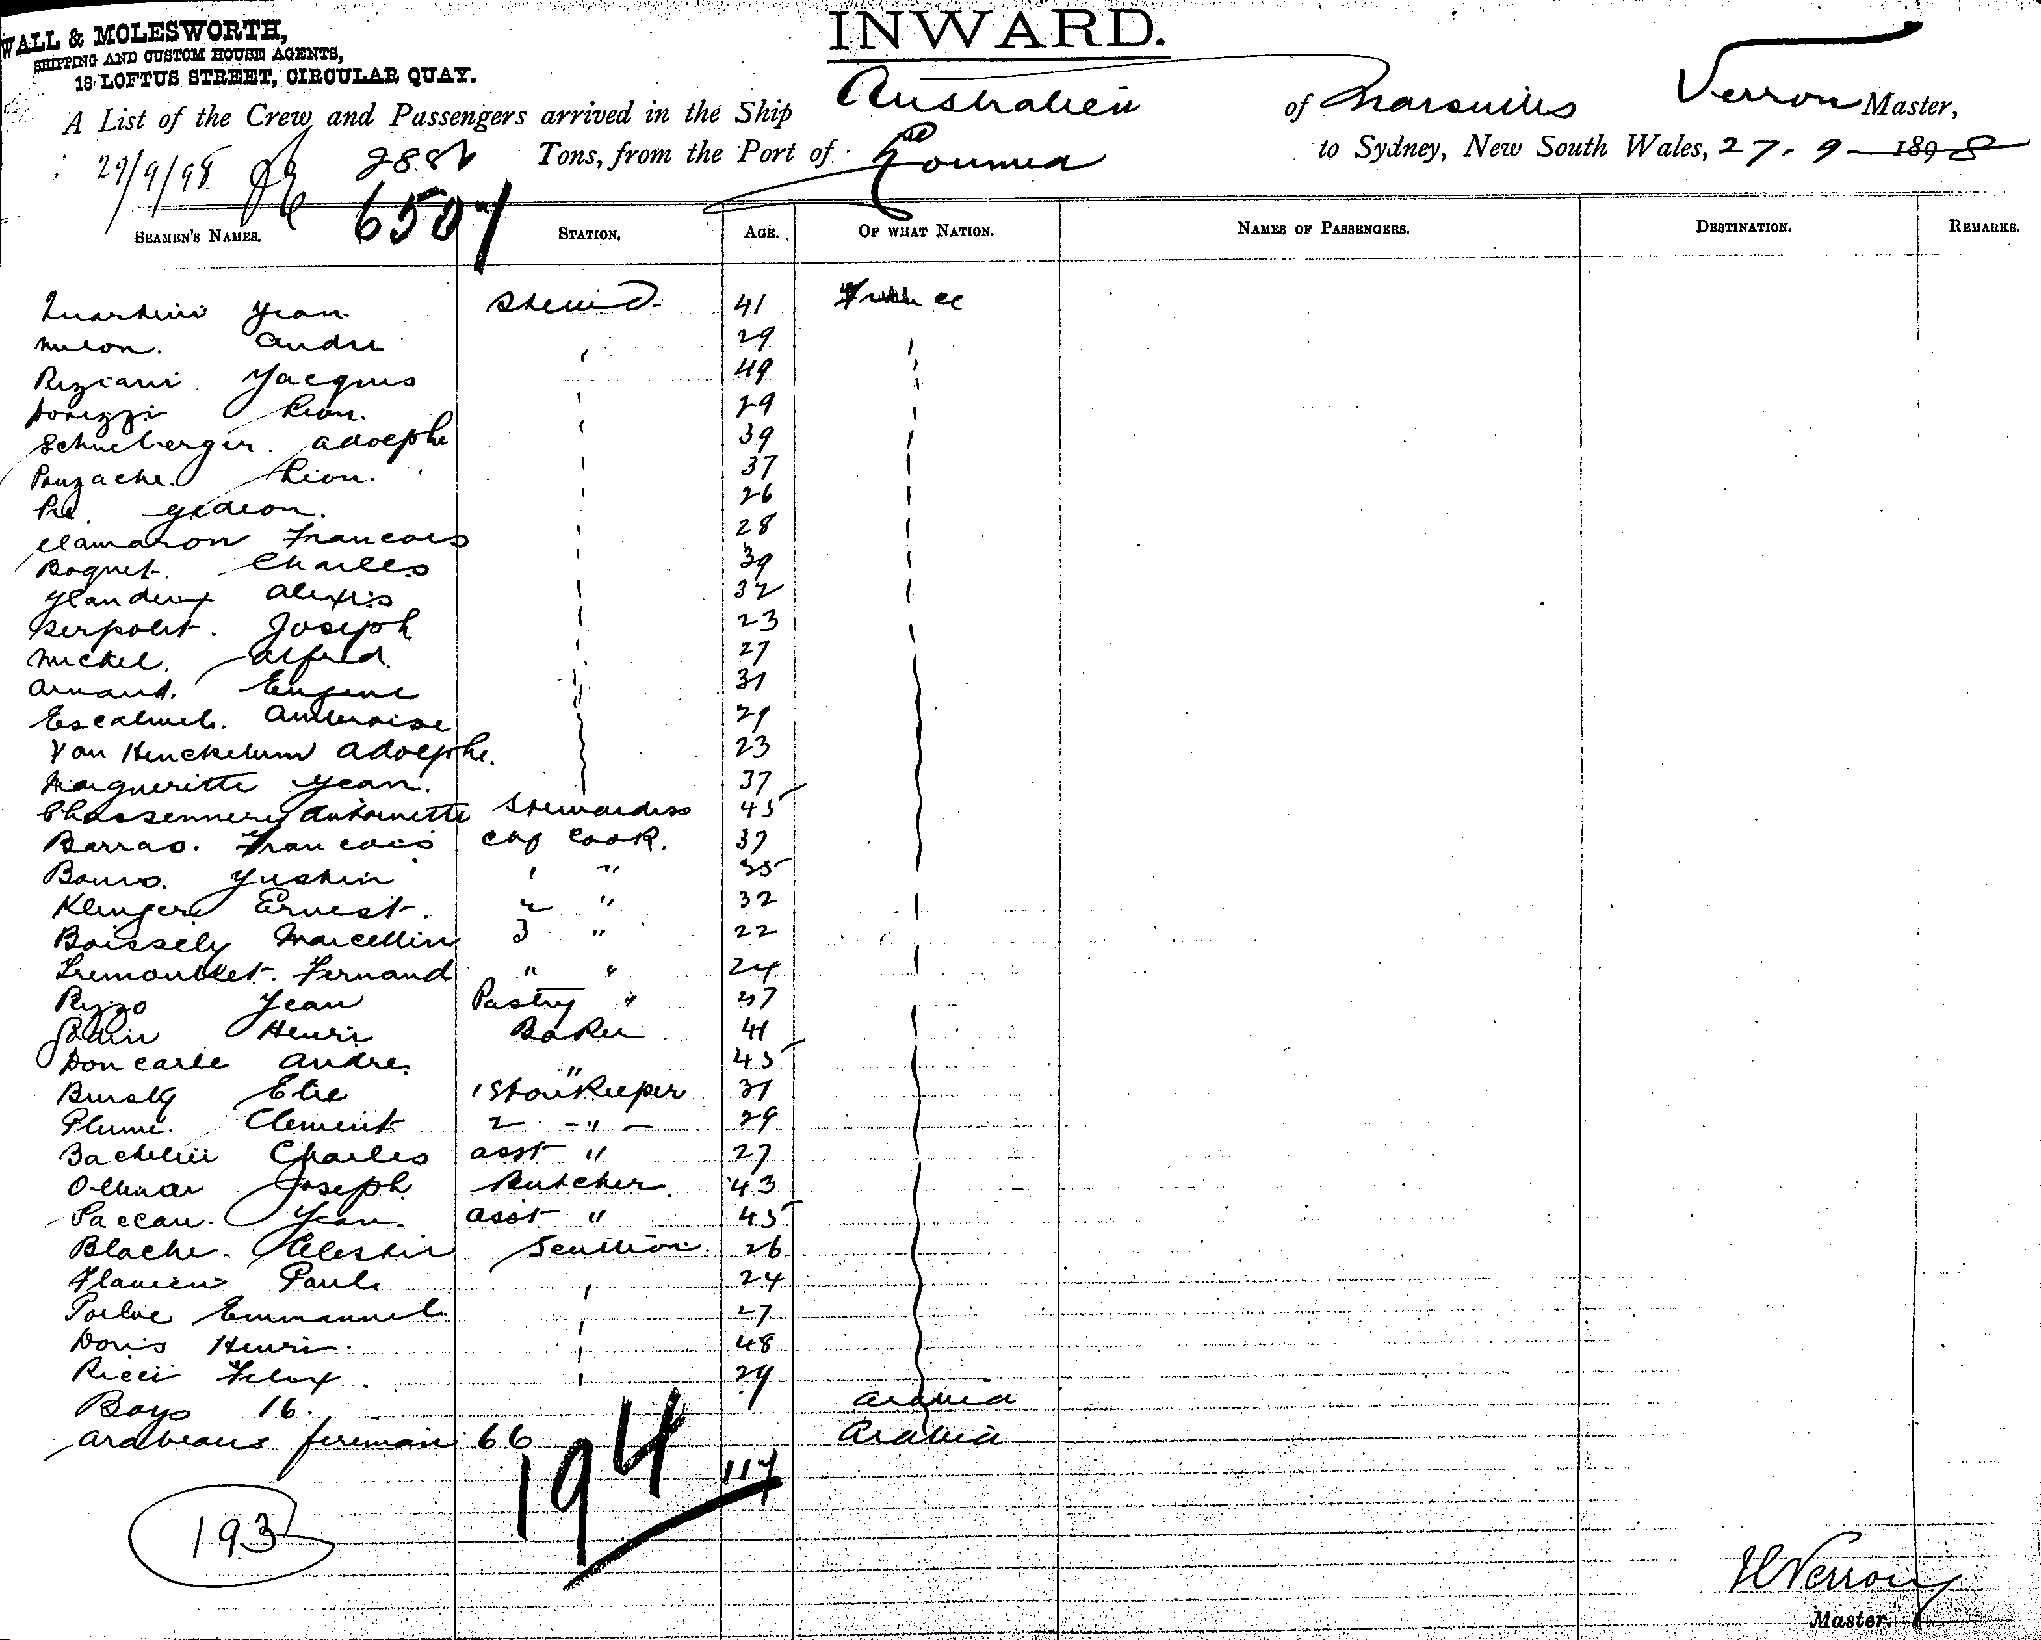 WALL & MOLESWORTH,
SHIPPING AND CUSTOM HOUSE AGENTS,
18 LOFTUS STREET, CIRCULAR QUAY.
INWARD.
A List of the Crew and Passengers arrived in the Ship Australien of Marseilles Verron Master,
29/9/98 2882 Tons, from the Port of Noumea to Sydney, New South Wales, 27-9-1898
6507
SEAMEN'S NAMES. STATION. AGE. OF WHAT NATION. NAMES OF PASSENGERS. DESTINATION. REMARKS.
Jean 41 France
Milon. Andre ' 29 '
Riziani Jacques 49 '
Dorizzi Leon. ' 29 '
Schneberger. Adolphe ' 39 '
Pouzache. Leon. ' 37 '
Pre. Gedeon. ' 26 '
Clamaron Francois ' 28 '
Boquet. Charles ' 39 '
Glandeux Alexis ' 32 '
Serpolet. Joseph ' 23 '
Michel. Alfred. ' 27
Arnaud. Eugene ' 31
Ambroise 29
Van Hinckelum Adolphe. 23
Margueritte Jean. 37
Chassennery Antoinette Stewardess 45
Barras. Francois Chf Cook. 37
Bouis. Justin ' " 35
Klinger Ernest. 2 " 32 '
Boissely Marcellin 3 " 22 '
Fernand " " 24 '
Rizzo Jean Pastry " 37
Henri Baker 41
Doncarle Andre. " 45
Elie 1 Storekeeper 31
Plume. Clement 2 -"- 29
Bachelier Charles asst " 27
Ollivar Joseph Butcher. 43
Paccau. Jean. asst " 45
Blache. Celestin Scullion. 26
Flavien Paul. ' 24
Emmanuel. ' 27
Doris Henri. ' 48
Ricci Felix. ' 29
Boys 16. Arabia
Arabeans firemain 66 Arabia
194 117
193
H Verron
Master.